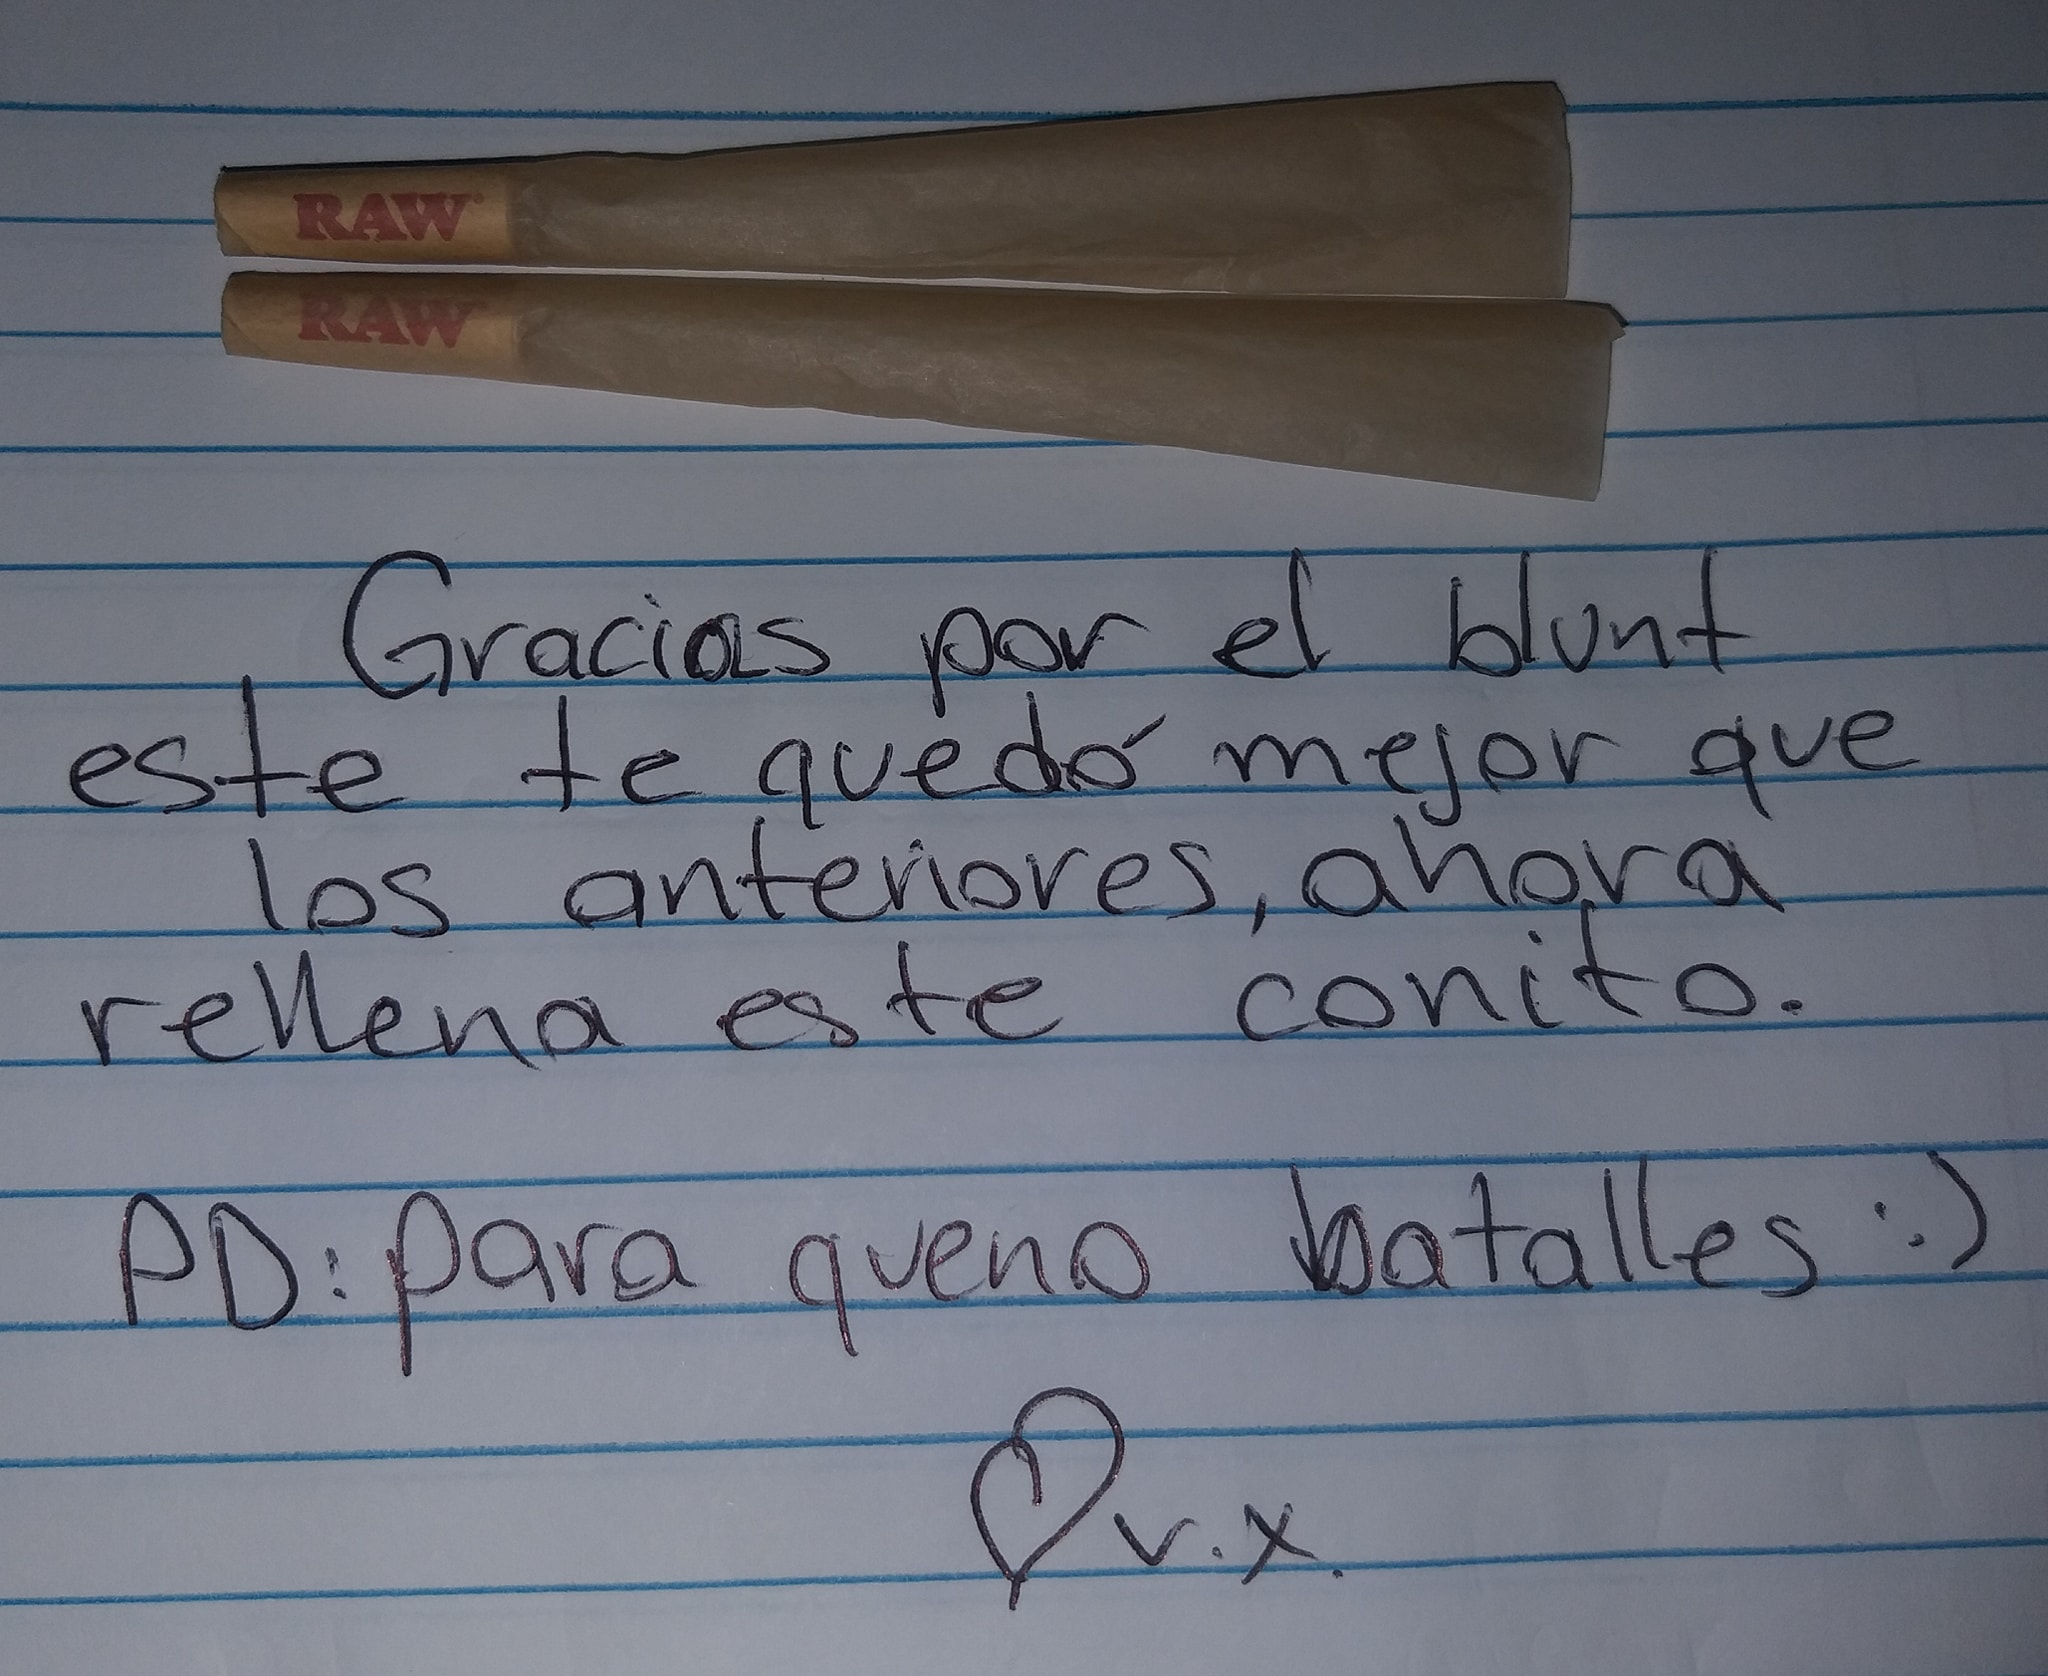 RAW
RAW
Gracias por el blunt
este te quedó mejor que
los anteriores, ahora
rellena este conito.
PD: para queno batalles :)
v.x.